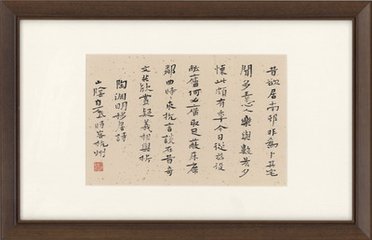 昔欲居南邨非為卜其宅
聞多素心人樂與數晨夕
懷此頗有年今日從茲役
敝廬何必廣取足蔽床席
鄰曲時來抗言談在昔奇
文共欣賞疑義相與析
陶淵明移居詩
山陰 時客杭州